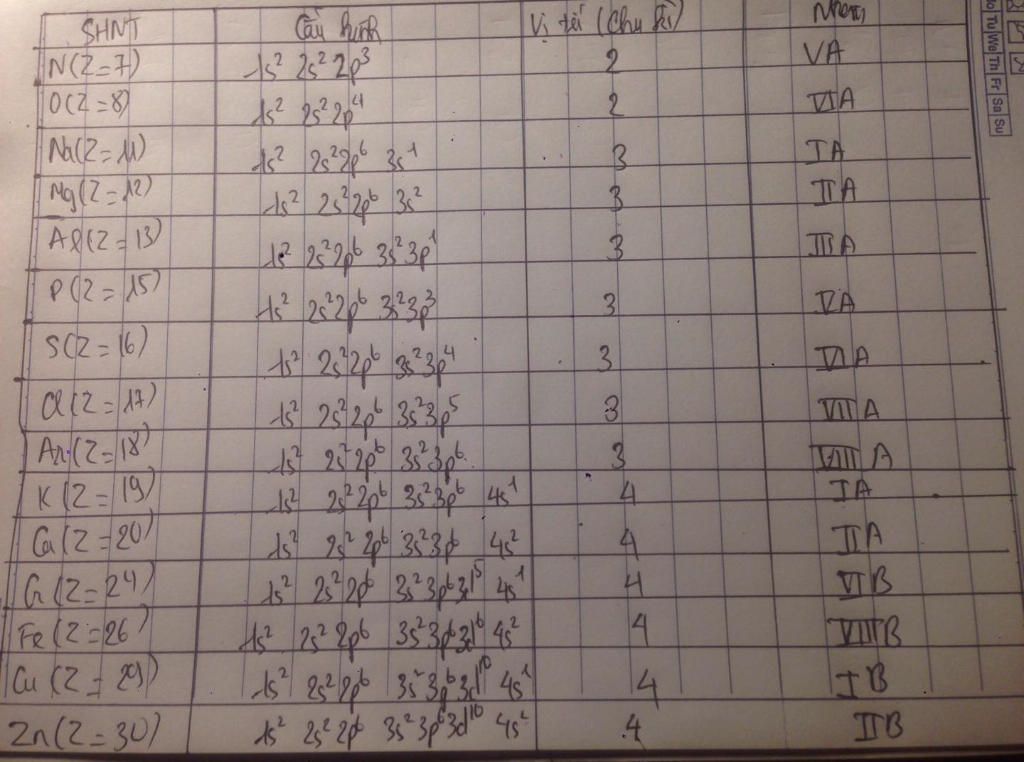 SHNT Cấu hình Vị trí (Chu kì) Nhóm
N(Z=7) 1s² 2s²2p³ 2 VA
O(Z=8) 1s² 2s²2p⁴ 2 VIA
Na(Z=11) 1s² 2s²2p⁶ 3s¹ 3 IA
Mg(Z=12) 1s² 2s²2p⁶ 3s² 3 IIA
Al(Z=13) 1s² 2s²2p⁶ 3s²3p¹ 3 IIIA
P(Z=15) 1s² 2s²2p⁶ 3s²3p³ 3 VA
S(Z=16) 1s² 2s²2p⁶ 3s²3p⁴ 3 VIA
Cl(Z=17) 1s² 2s²2p⁶ 3s²3p⁵ 3 VIIA
Ar(Z=18) 1s² 2s²2p⁶ 3s²3p⁶ 3 VIIIA
K(Z=19) 1s² 2s²2p⁶ 3s²3p⁶ 4s¹ 4 IA
Ca(Z=20) 1s² 2s²2p⁶ 3s²3p⁶ 4s² 4 IIA
Cr(Z=24) 1s² 2s²2p⁶ 3s²3p⁶3d⁵ 4s¹ 4 VIB
Fe(Z=26) 1s² 2s²2p⁶ 3s²3p⁶3d⁶ 4s² 4 VIIIB
Cu(Z=29) 1s² 2s²2p⁶ 3s²3p⁶3d¹⁰ 4s¹ 4 IB
Zn(Z=30) 1s² 2s²2p⁶ 3s²3p⁶3d¹⁰ 4s² 4 IIB
Mo Tu We Th Fr Sa Su